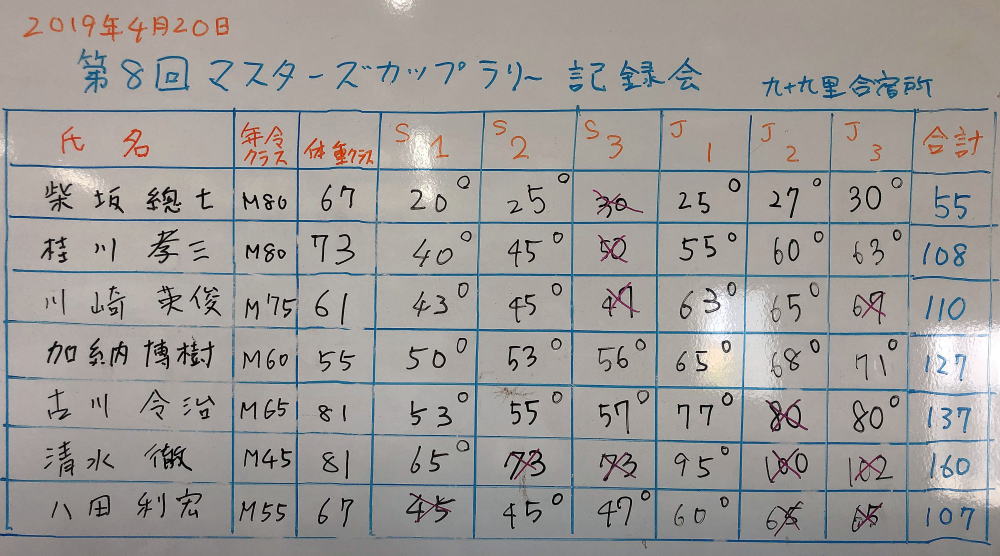 2019年4月20日
第8回 マスターズカップラリー 記録会 九十九里合宿所
氏 名 年令クラス 体重クラス S1 S2 S3 J1 J2 J3 合計
柴坂 總士 M80 67 20° 25° 30 25° 27° 30° 55
桂川 孝三 M80 73 40° 45° 50 55° 60° 63° 108
川崎 英俊 M'75 61 43° 45° 47 63° 65° 67 110
加納 博樹 M60 55 50° 53° 56° 65° 68° 71° 127
古川 令治 M65 81 53° 55° 57° 77° 80 80° 137
清水 徹 M45 81 65° 73 73 95° 100 102 160
八田 利宏 M55 67 45 45° 47° 60° 65 65 107